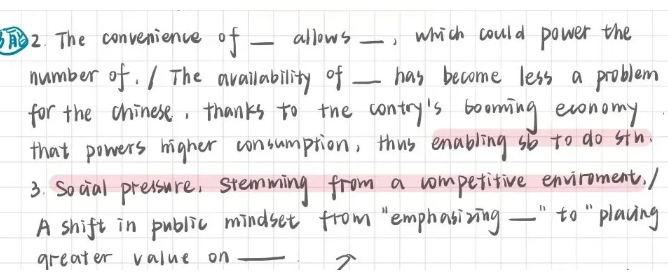 2. The convenience of — allows —, which could power the
number of. / The availability of — has become less a problem
for the chinese, thanks to the contry's booming economy
that powers higher consumption, thus enabling sb to do sth.
3. Social pressure, stemming from a competitive enviroment. /
A shift in public mindset from "emphasizing —" to "placing
greater value on —